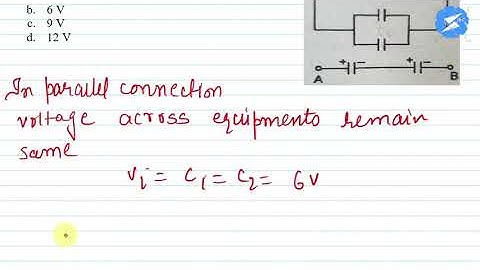 b. 6 V
c. 9 V
d. 12 V
+ - + -
A B
In parallel connection
voltage across equipments remain
same
Vi = C1 = C2 = 6V